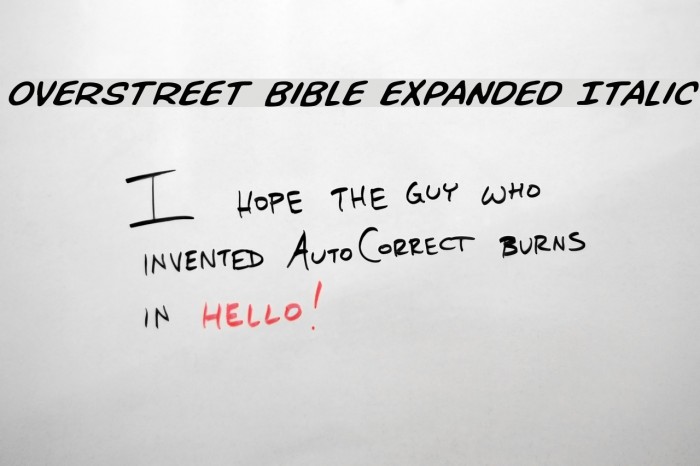 OVERSTREET BIBLE EXPANDED ITALIC
I HOPE THE GUY WHO
INVENTED AUTOCORRECT BURNS
IN HELLO!